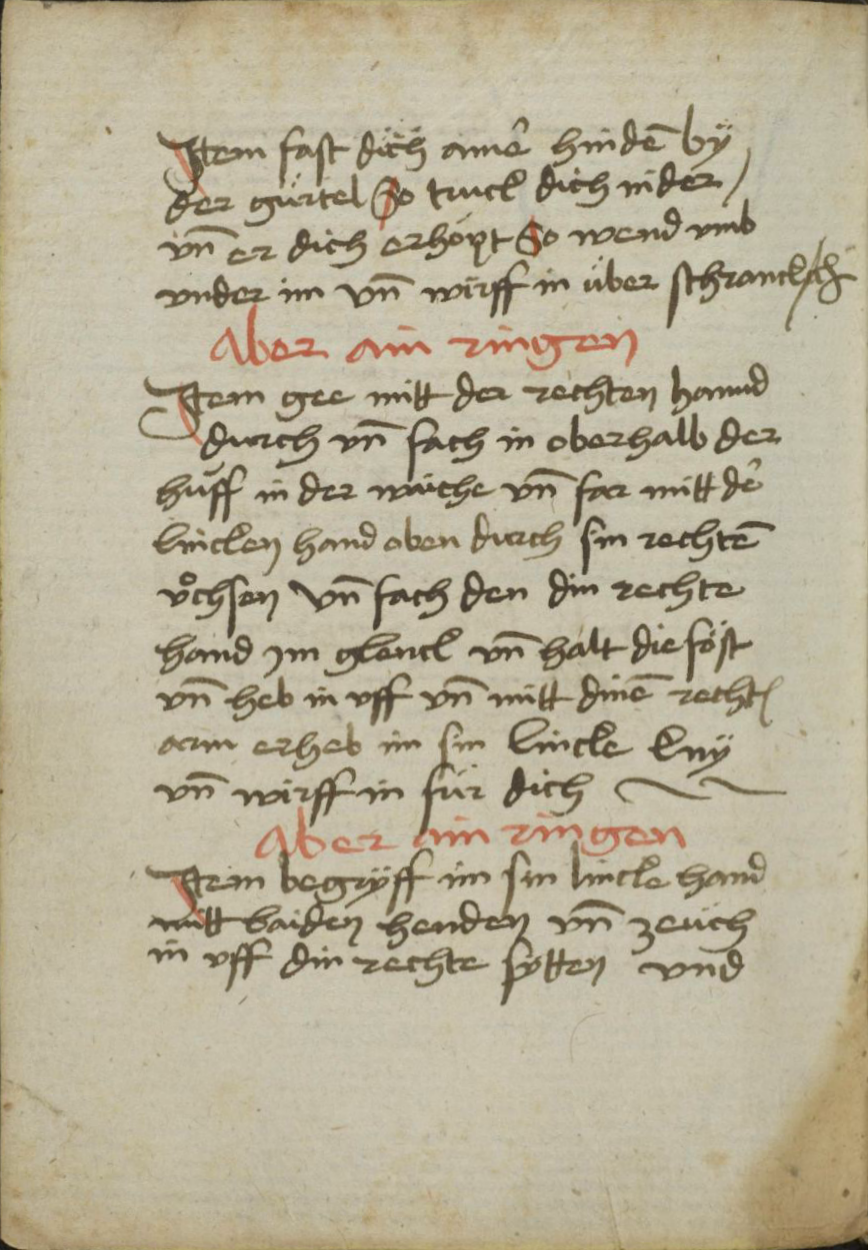 Item fast dich ainer̄ hindē by
der gürtel So truck dich nider /
vn̄ er dich erhöpt So wend vmb
vnder im vn̄ wirff in über schranckß
Aber ain ringen
Item gee mitt der rechten hannd
durch vn̄ fach in oberhalb der
hüff in der waiche vn̄ far mitt der̄
lincken hand oben durch sin rechtē
vͦchsen vn̄ fach den din rechte
hand Im glenck vn̄ halt die föst
vn̄ heb in vff vn̄ mitt dinē recht
arm erheb im sin lincke kny
vn̄ wirff in für dich
Aber ain ringen
Item begryff im sin lincke hand
mitt baiden henden vn̄ zeüch
in vff din rechte sytten vnd